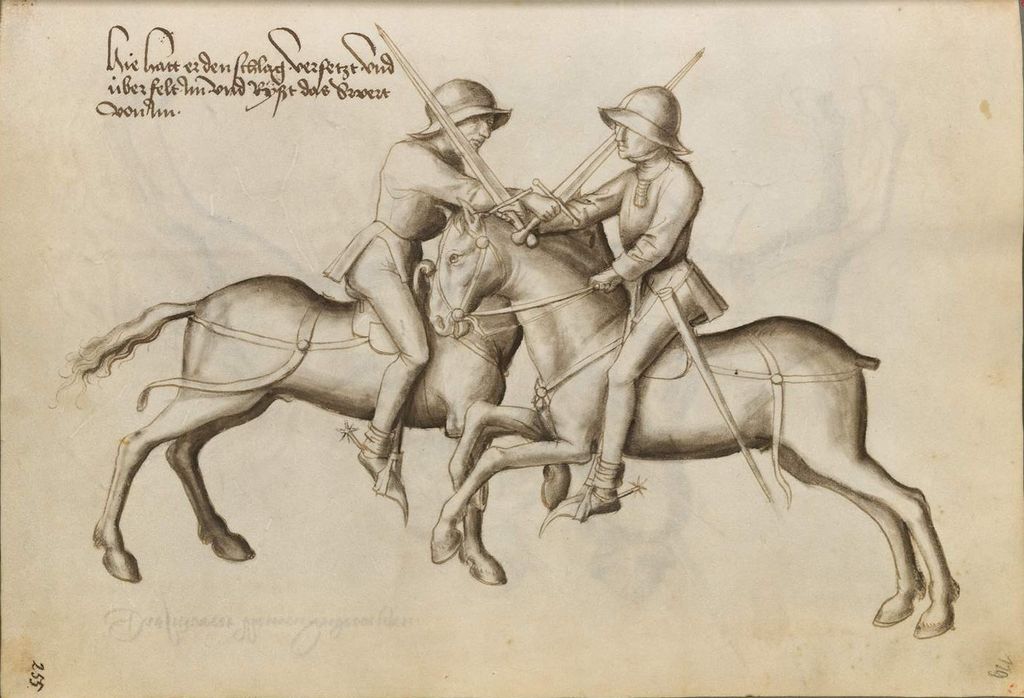 Hie hatt er den schlag versetzt vnd
über felt Im vnd Ryßt das Swert
von Im.
255.